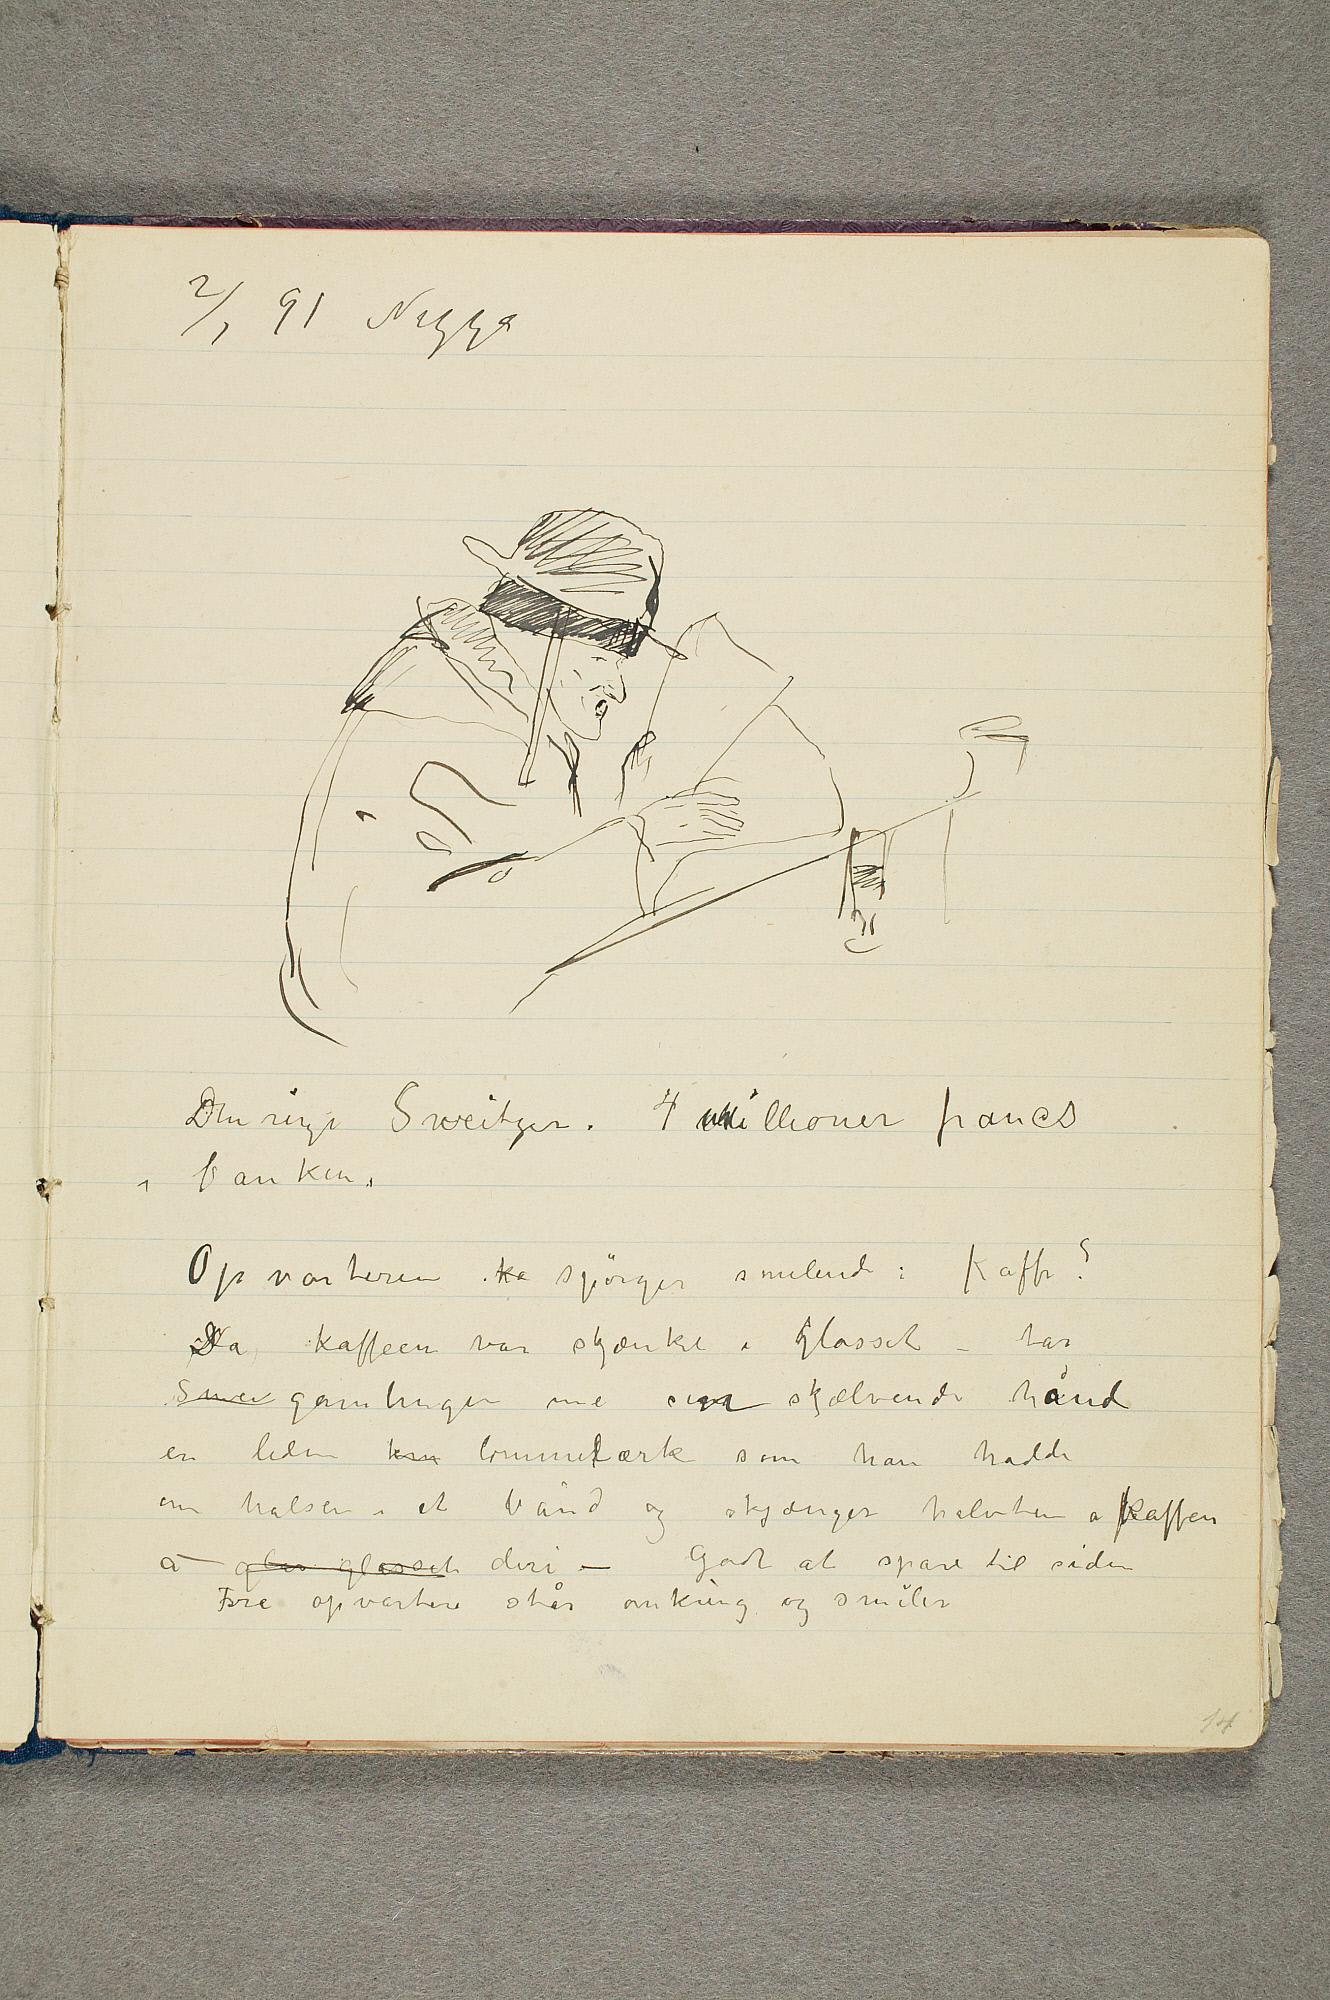 2/1 91 Nizza
Den rige Sweitzer. 4 millioner francs
i banken.
Opvarteren ka spörger smilende: Kaffe?
Da kaffeen var skjænket i Glasset – tar
Swei gamlingen me sin skjælvende hånd
en liden lommelærke som han hadde
om halsen i et bånd og skjænger halvten a kaffen
a glas glasset deri – Godt at spare til siden
Fire opvartere står omkring og smiler
14